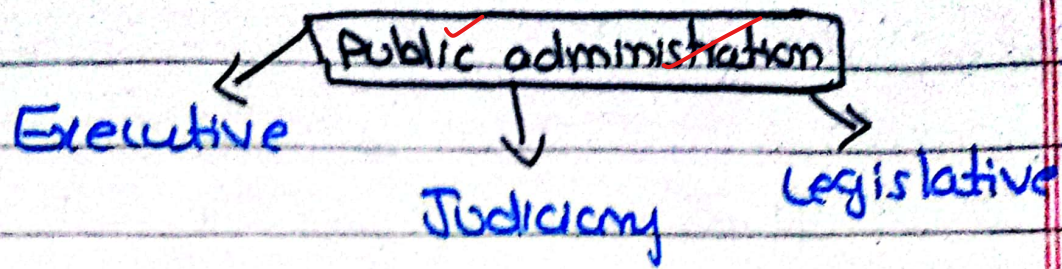 Public administration
Executive
Judiciary
Legislative